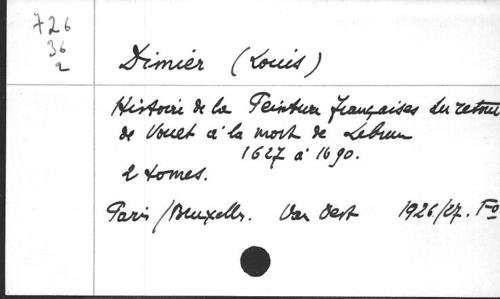 726
36
2
Dimier (Louis)
Histoire de la Peinture françaises du retour
de Vouet à la mort de Lebrun
1627 à 1690.
2 tomes.
Paris/Bruxelles. Van Oest 1926/27. Fo